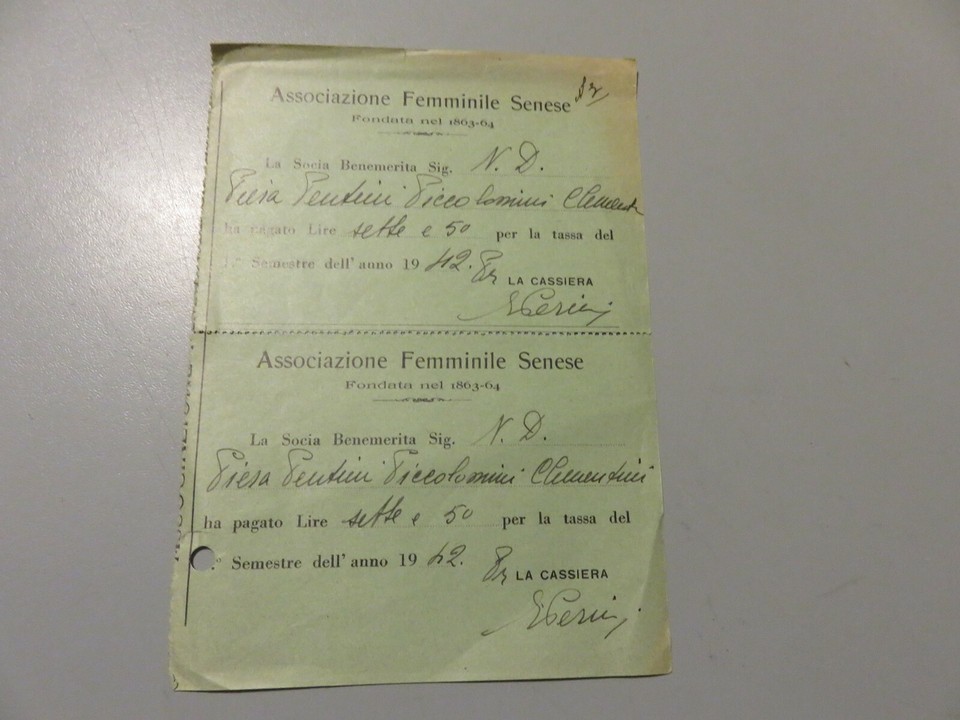 Associazione Femminile Senese
Fondata nel 1863-64
La Socia Benemerita Sig. N. D.
Piera Pentini Piccolomini
ha pagato Lire sette e 50 per la tassa del
Semestre dell'anno 1942. Pr LA CASSIERA
Associazione Femminile Senese
Fondata nel 1863-64
La Socia Benemerita Sig. N. D.
Piera Pentini Piccolomini Clementini
ha pagato Lire sette e 50 per la tassa del
Semestre dell'anno 1942. Pr LA CASSIERA